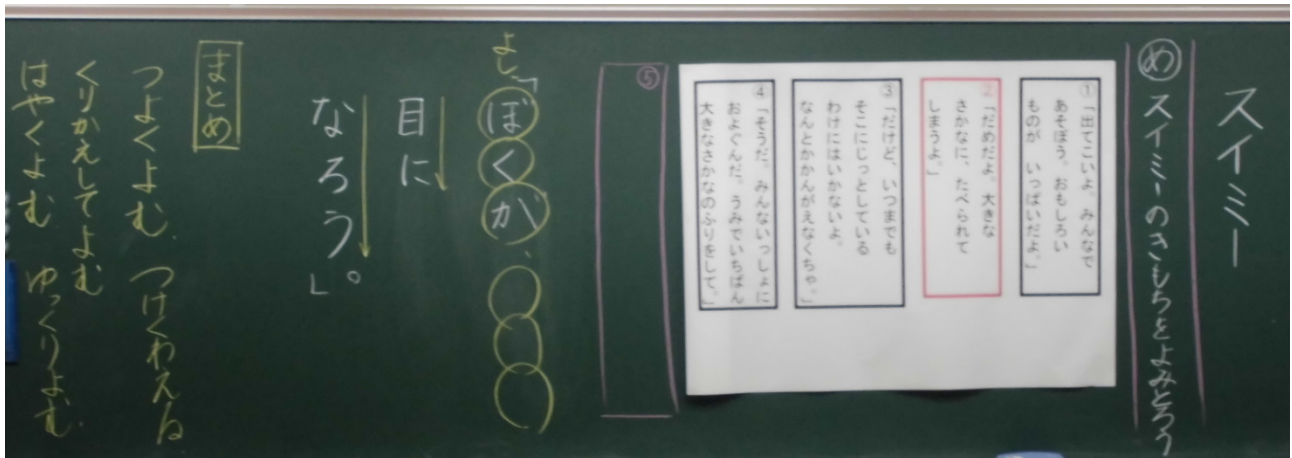 スイミー
め スイミーのきもちをよみとろう
①「出てこいよ。みんなで
あそぼう。おもしろい
ものが いっぱいだよ。」
②「だめだよ。大きな
さかなに、たべられて
しまうよ。」
③「だけど、いつまでも
そこにじっとしている
わけにはいかないよ。
なんとかかんがえなくちゃ。」
④「そうだ。みんないっしょに
およぐんだ。うみでいちばん
大きなさかなのふりをして。」
⑤
よし「ぼくが、
目に
なろう。」
まとめ
つよくよむ、つけくわえる
くりかえしてよむ
はやくよむ ゆっくりよむ